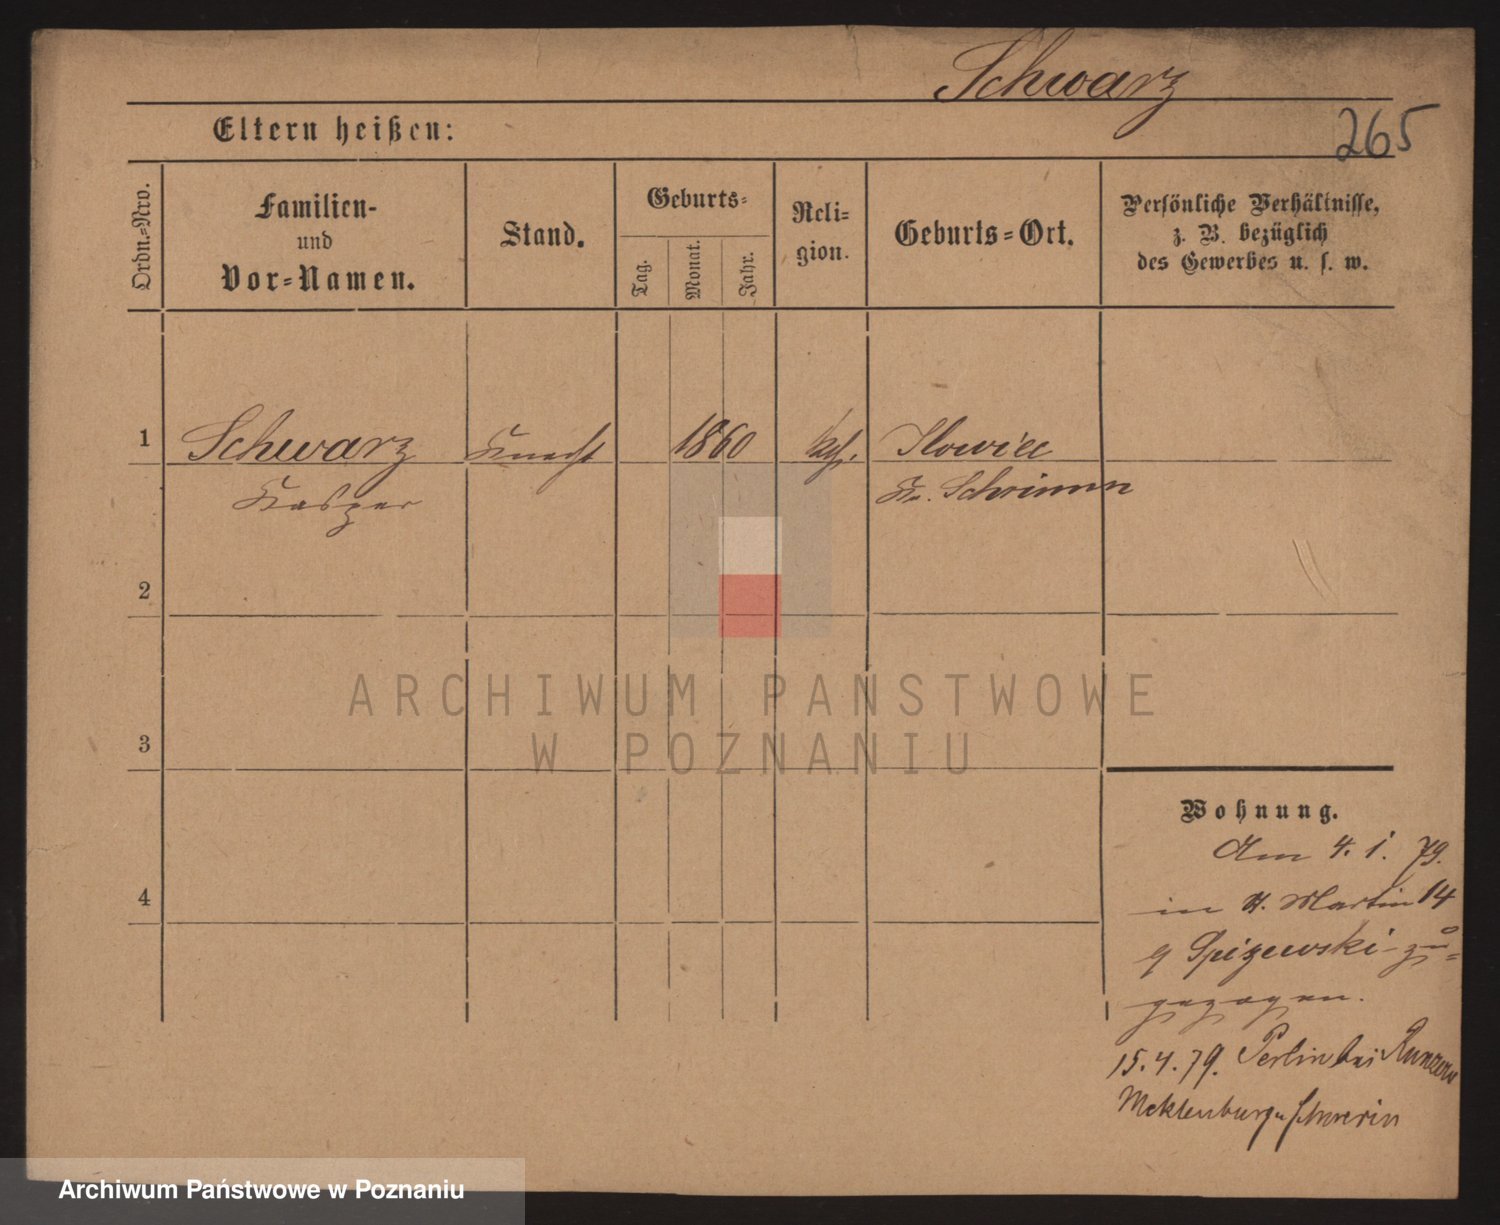 Schwarz
265
Eltern heißen:
Ordn.=Nro.
Familien-
und
Vor=Namen.
Stand.
Geburts=
Tag.
Monat.
Jahr.
Reli=
gion.
Geburts=Ort.
Persönliche Verhältnisse,
z. B. bezüglich
des Gewerbes u. s. w.
1
Schwarz
Knecht
1860
kth.
Ilowiec
Kasper
Kr. Schrimm
2
3
4
Wohnung.
Am 4. 1. 79.
in St. Martin 14
Spizewski zu=
gezogen.
15. 4. 79. Perlin bei
Meklenburg Schwerin
ARCHIWUM PAŃSTWOWE
W POZNANIU
Archiwum Państwowe w Poznaniu